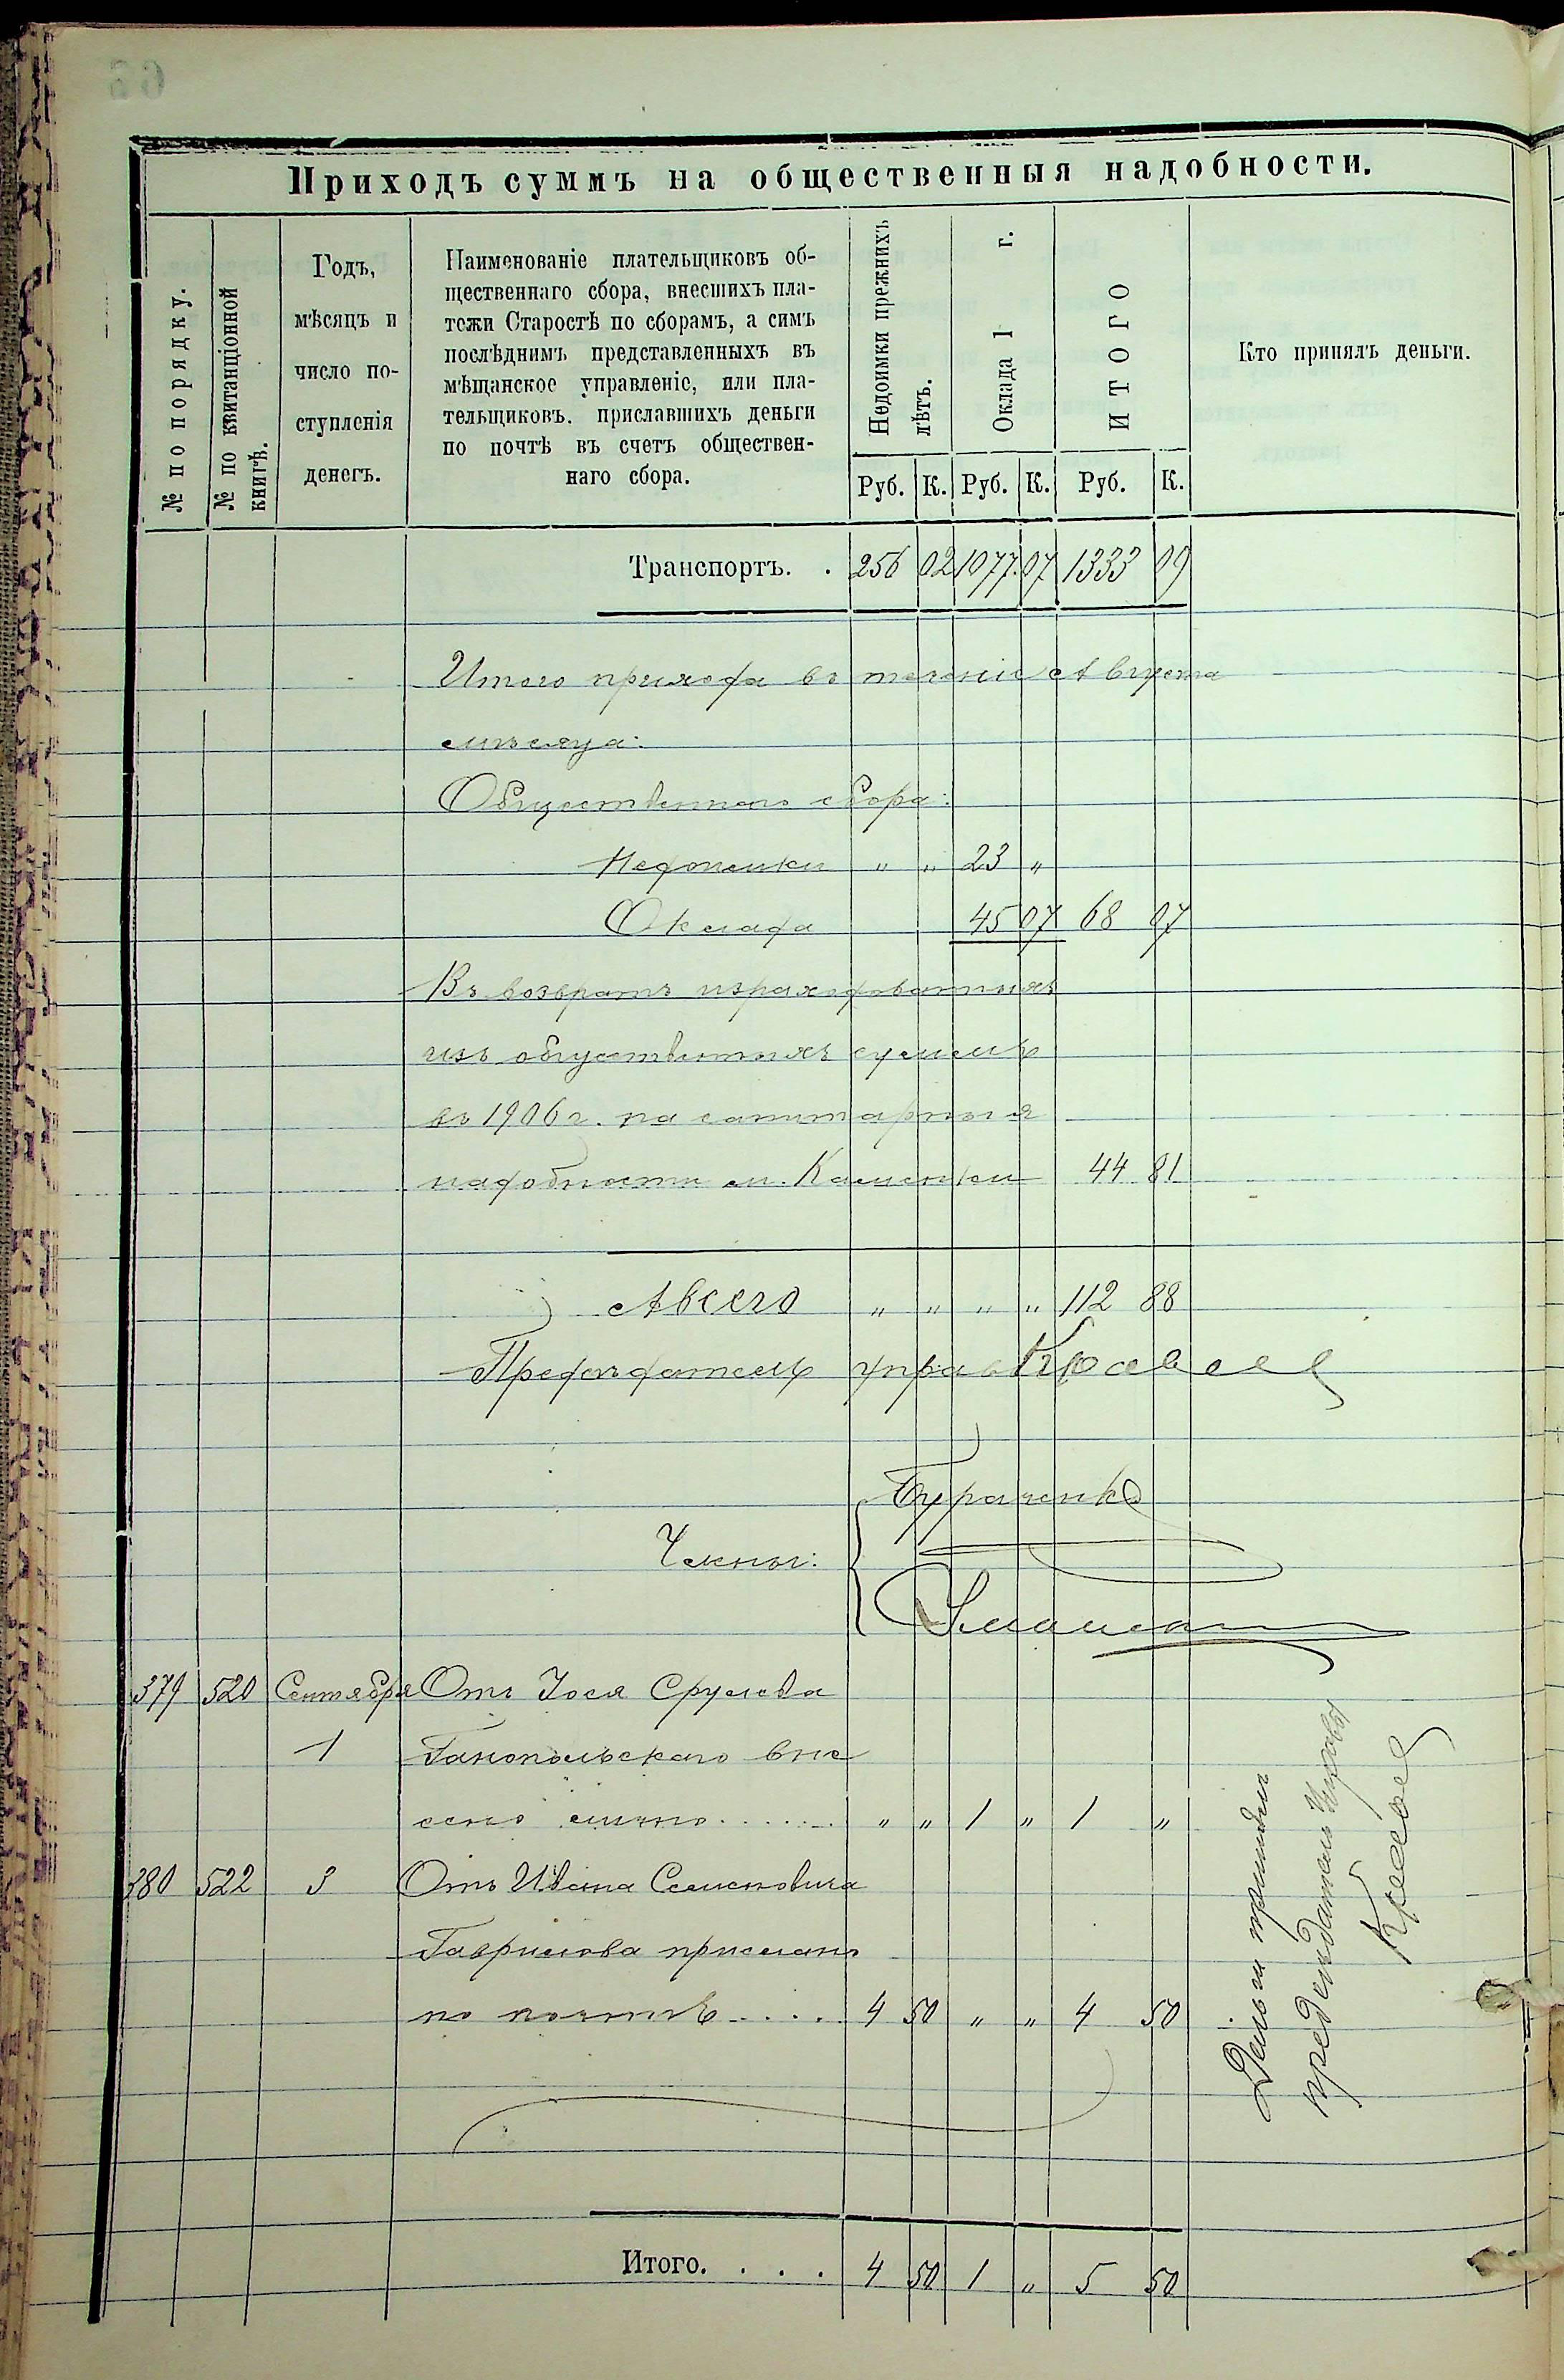 Приходъ суммъ на общественныя надобности.
№ по порядку.
№ по квитанціонной
книгѣ.
Годъ,
мѣсяцъ и
число по-
ступленія
денегъ.
Наименованіе плательщиковъ об-
щественнаго сбора, внесшихъ пла-
тежи Старостѣ по сборамъ, а симъ
послѣднимъ представленныхъ въ
мѣщанское управленіе, или пла-
тельщиковъ. приславшихъ деньги
по почтѣ въ счетъ обществен-
наго сбора.
Недоимки прежнихъ
лѣтъ.
Оклада 1 г.
ИТОГО
Кто принялъ деньги.
Руб. К. Руб. К. Руб. К.
Транспортъ. . 256 02 1077 07 1333 09
Итого прихода въ теченіе Августа
мѣсяца:
Общественнаго сбора:
Недоимки „ „ 23 „
Оклада 45 07 68 07
Въ возвратъ израходованныхъ
изъ общественныхъ суммъ
въ 1906 г. на санитарныя
надобности м. Каменки 44 81
А всего „ „ „ „ 112 88
Предсѣдатель управы
Бураченко
Члены:
379 520 Сентября Отъ Іося Срулева
1 Ганопольскаго вне
сено лично....... „ „ 1 „ 1 „
380 522 3 Отъ Ивана Семеновича
Гаврилова прислано
по почтѣ..... 4 50 „ „ 4 50
Деньги принялъ
предсѣдатель Управы
Итого. . . . 4 50 1 „ 5 50